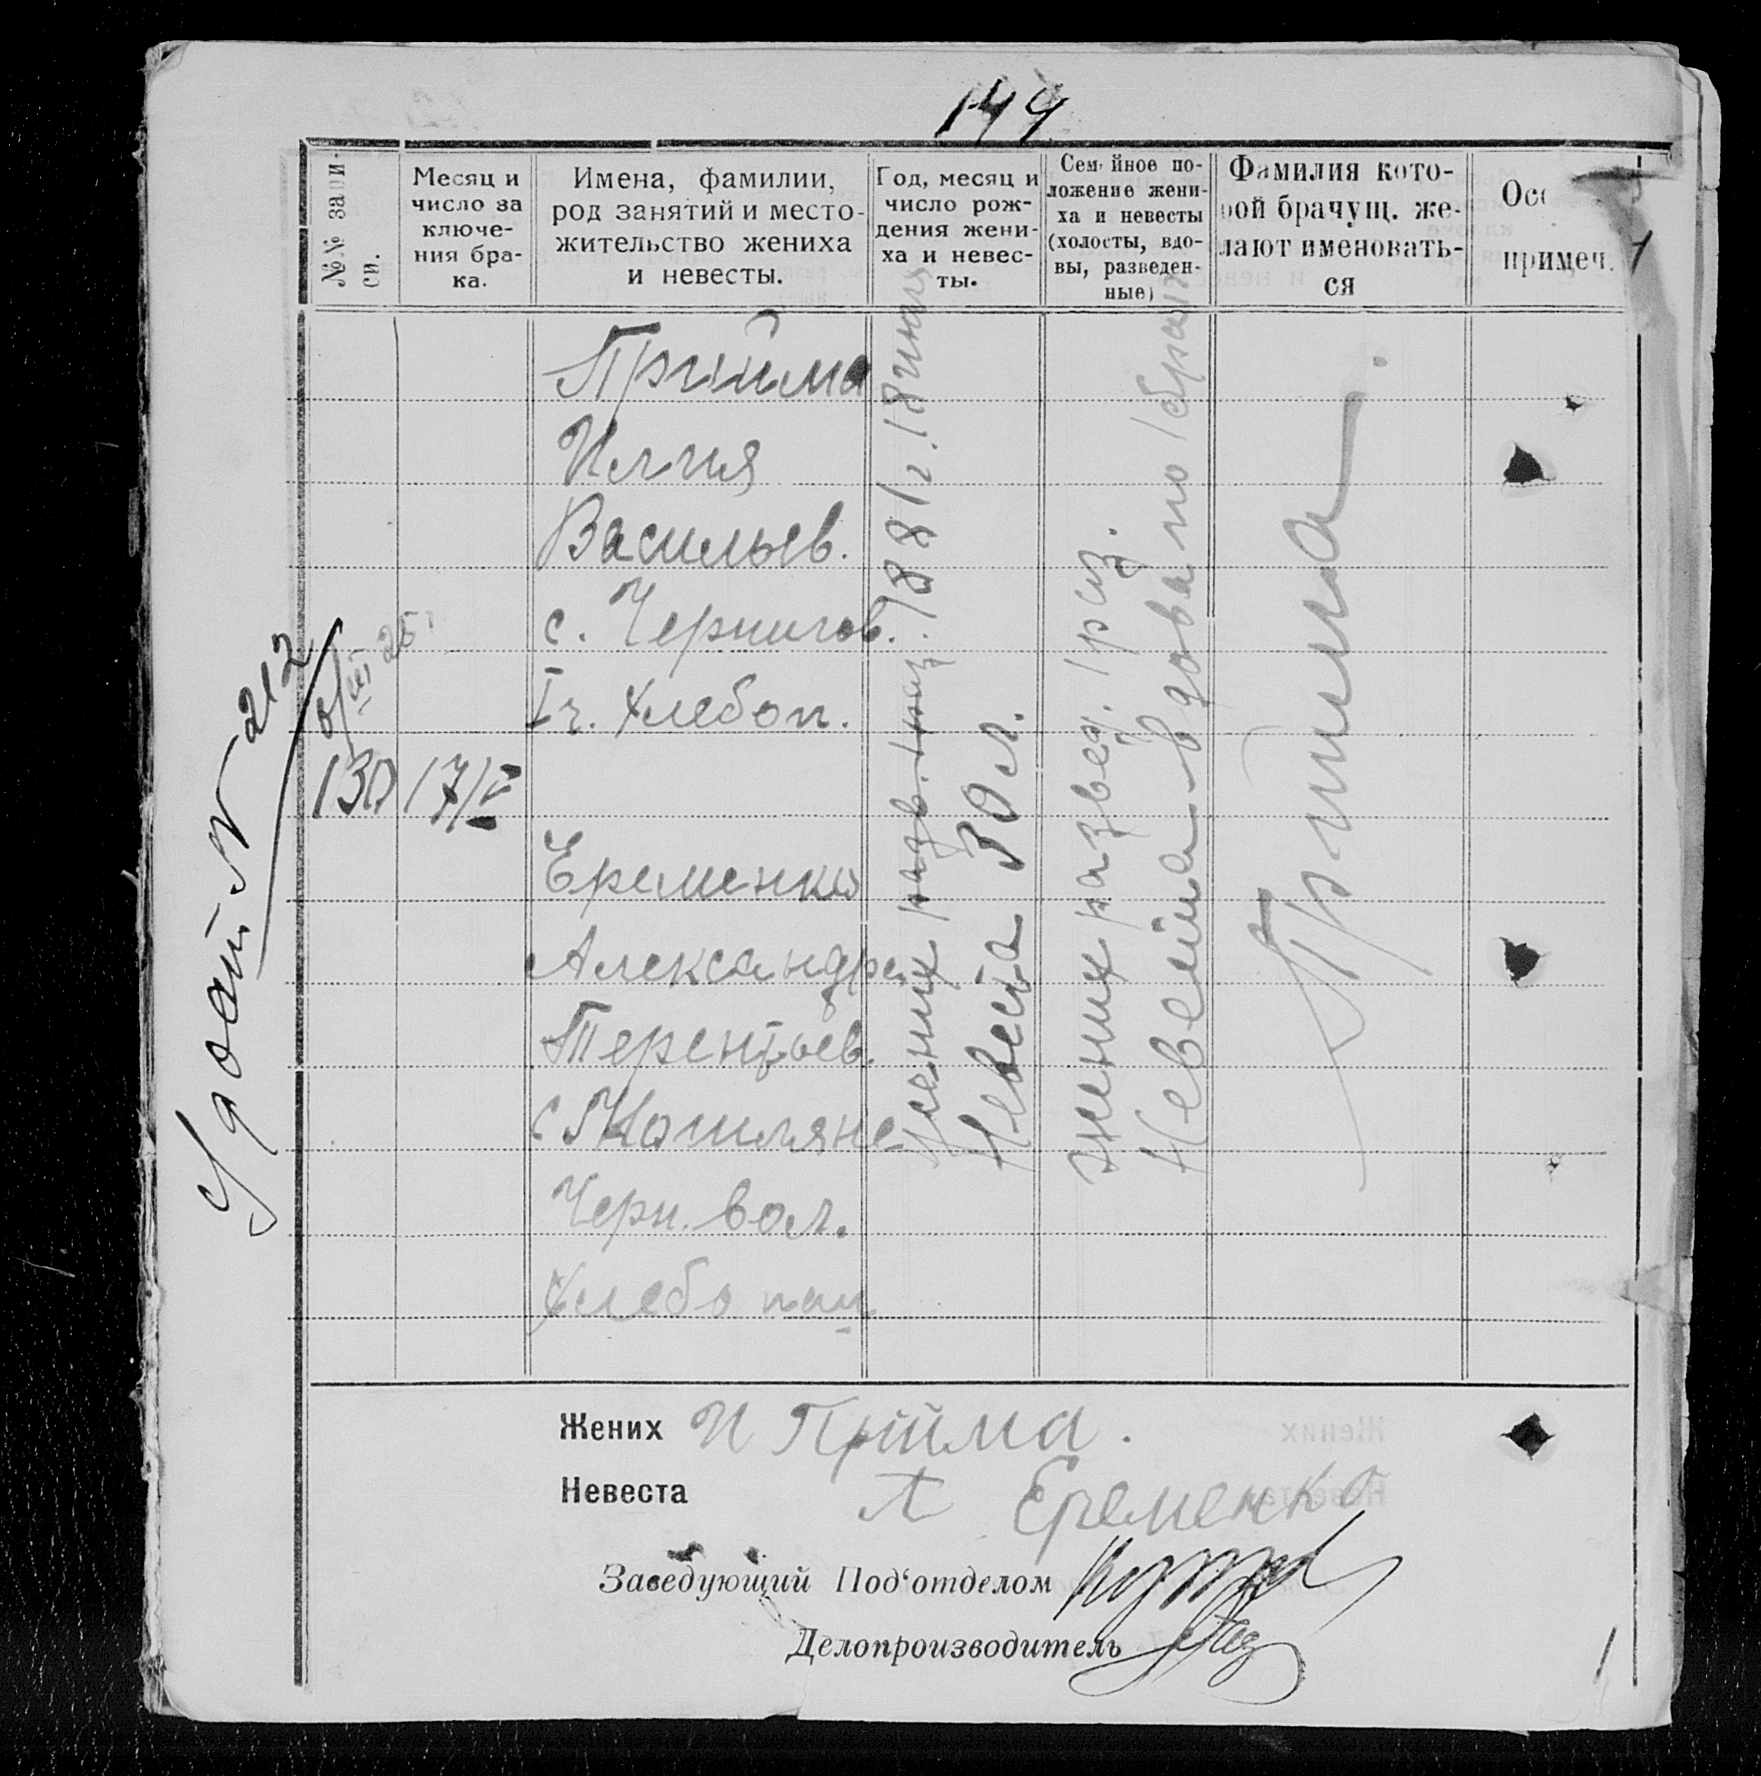 144
№№ запи-
си.
Месяц и
число за
ключе-
ния бра-
ка.
Имена, фамилии,
род занятий и место-
жительство жениха
и невесты.
Год, месяц и
число рож-
дения жени-
ха и невес-
ты.
Семейное по-
ложение жени-
ха и невесты
(холосты, вдо-
вы, разведен-
ные)
Фамилия кото-
рой брачущ. же-
лают именовать-
ся
Осо
примеч.
Удост. № 212
130
17/V
Приима
Илия
Васильев.
с. Чернигов.
I ч. Хлебоп.
Еременко
Александра
Терентьев.
Черн. вол.
Хлебопаш
Жених разв. 1 раз. 1881 г. 18 июля
Невеста 30 л.
Жених развед. 1 раз.
Невеста вдова по 1 браку
Прийма.
Жених И Прійма.
Невеста А Еременко
Заведующий Под‘отделом
Делопроизводитель